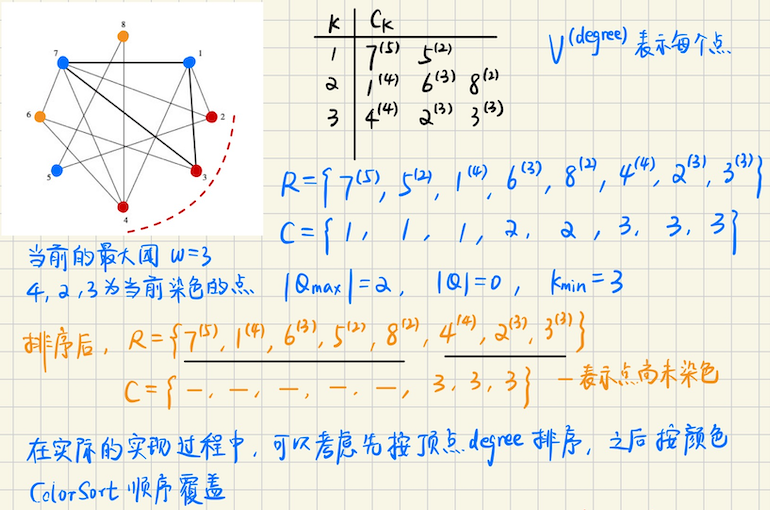 8
7
1
6
2
5
3
4
K Cκ
1 7⁽⁵⁾ 5⁽²⁾
2 1⁽⁴⁾ 6⁽³⁾ 8⁽²⁾
3 4⁽⁴⁾ 2⁽³⁾ 3⁽³⁾
V⁽ᵈᵉᵍʳᵉᵉ⁾ 表示每个点
R={7⁽⁵⁾, 5⁽²⁾, 1⁽⁴⁾, 6⁽³⁾, 8⁽²⁾, 4⁽⁴⁾, 2⁽³⁾, 3⁽³⁾}
C={1, 1, 1, 2, 2, 3, 3, 3}
当前的最大团 W=3
4,2,3为当前染色的点 |Qmax|=2, |Q|=0, kmin=3
排序后, R={7⁽⁵⁾, 1⁽⁴⁾, 6⁽³⁾, 5⁽²⁾, 8⁽²⁾, 4⁽⁴⁾, 2⁽³⁾, 3⁽³⁾}
C={—, —, —, —, —, 3, 3, 3} —表示点尚未染色
在实际的实现过程中, 可以考虑先按顶点degree排序, 之后按颜色
ColorSort 顺序覆盖